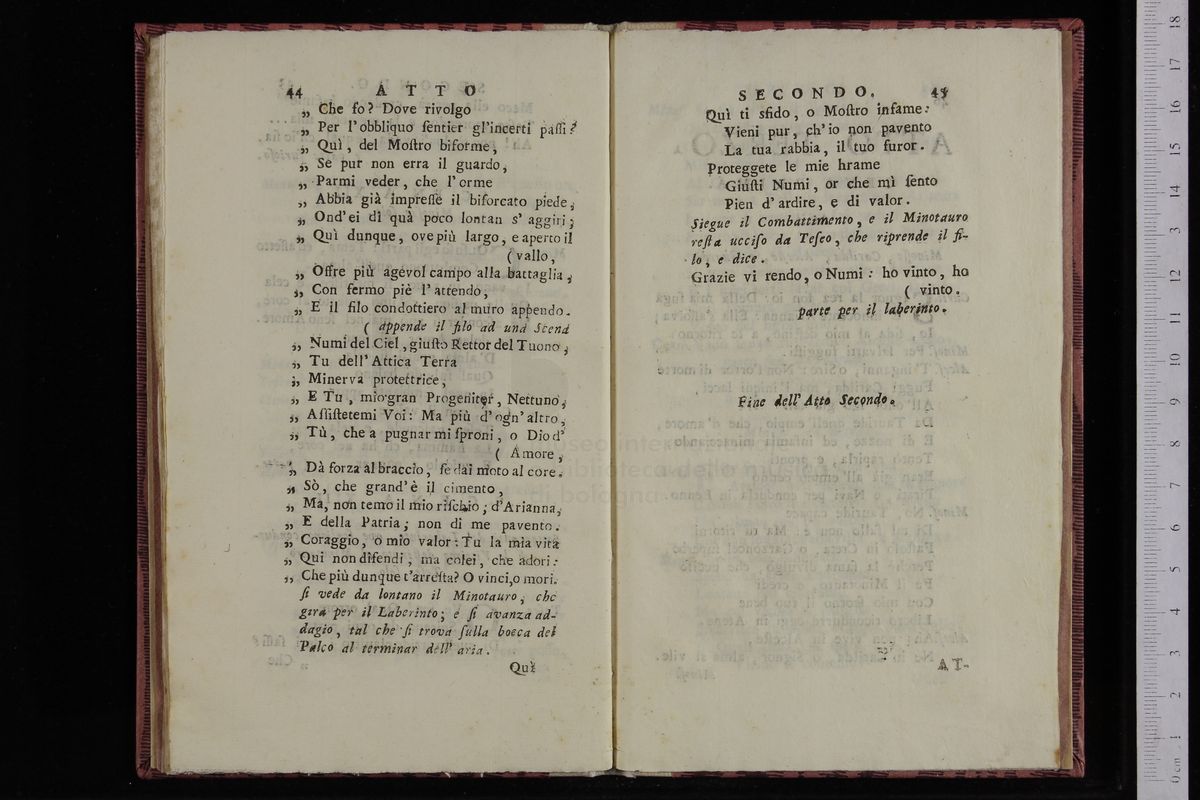 44 ATTO
„ Che fo? Dove rivolgo
„ Per l'obbliquo ſentier gl'incerti paſſi?
„ Quì, del Moſtro biforme,
„ Se pur non erra il guardo,
„ Parmi veder, che l'orme
„ Abbia già impreſſe il biforcato piede,
„ Ond'ei di quà poco lontan s'aggiri;
„ Quì dunque, ove più largo, e aperto il
( vallo,
„ Offre più agevol campo alla battaglia,
„ Con fermo piè l'attendo,
„ E il filo condottiero al muro appendo.
( appende il filo ad una Scena
„ Numi del Ciel, giuſto Rettor del Tuono,
„ Tu dell'Attica Terra
„ Minerva protettrice,
„ E Tu, mio gran Progenitor, Nettuno,
„ Aſſiſtetemi Voi: Ma più d'ogn'altro,
„ Tù, che a pugnar mi ſproni, o Dio d'
( Amore,
„ Dà forza al braccio, ſe dai moto al core.
„ Sò, che grand'è il cimento,
„ Ma, non temo il mio riſchio; d'Arianna,
„ E della Patria; non di me pavento.
„ Coraggio, o mio valor: Tu la mia vita
„ Qui non difendi, ma colei, che adori:
„ Che più dunque t'arreſta? O vinci, o mori.
ſi vede da lontano il Minotauro, che
gira per il Laberinto; e ſi avanza ad-
dagio, tal che ſi trova ſulla bocca del
Palco al terminar dell'aria.
Quì
SECONDO. 45
Quì ti sfido, o Moſtro infame:
Vieni pur, ch'io non pavento
La tua rabbia, il tuo furor.
Proteggete le mie brame
Giuſti Numi, or che mi ſento
Pien d'ardire, e di valor.
Siegue il Combattimento, e il Minotauro
reſta ucciſo da Teſeo, che riprende il fi-
lo, e dice.
Grazie vi rendo, o Numi: ho vinto, ho
( vinto.
parte per il laberinto.
Fine dell'Atto Secondo.
AT-